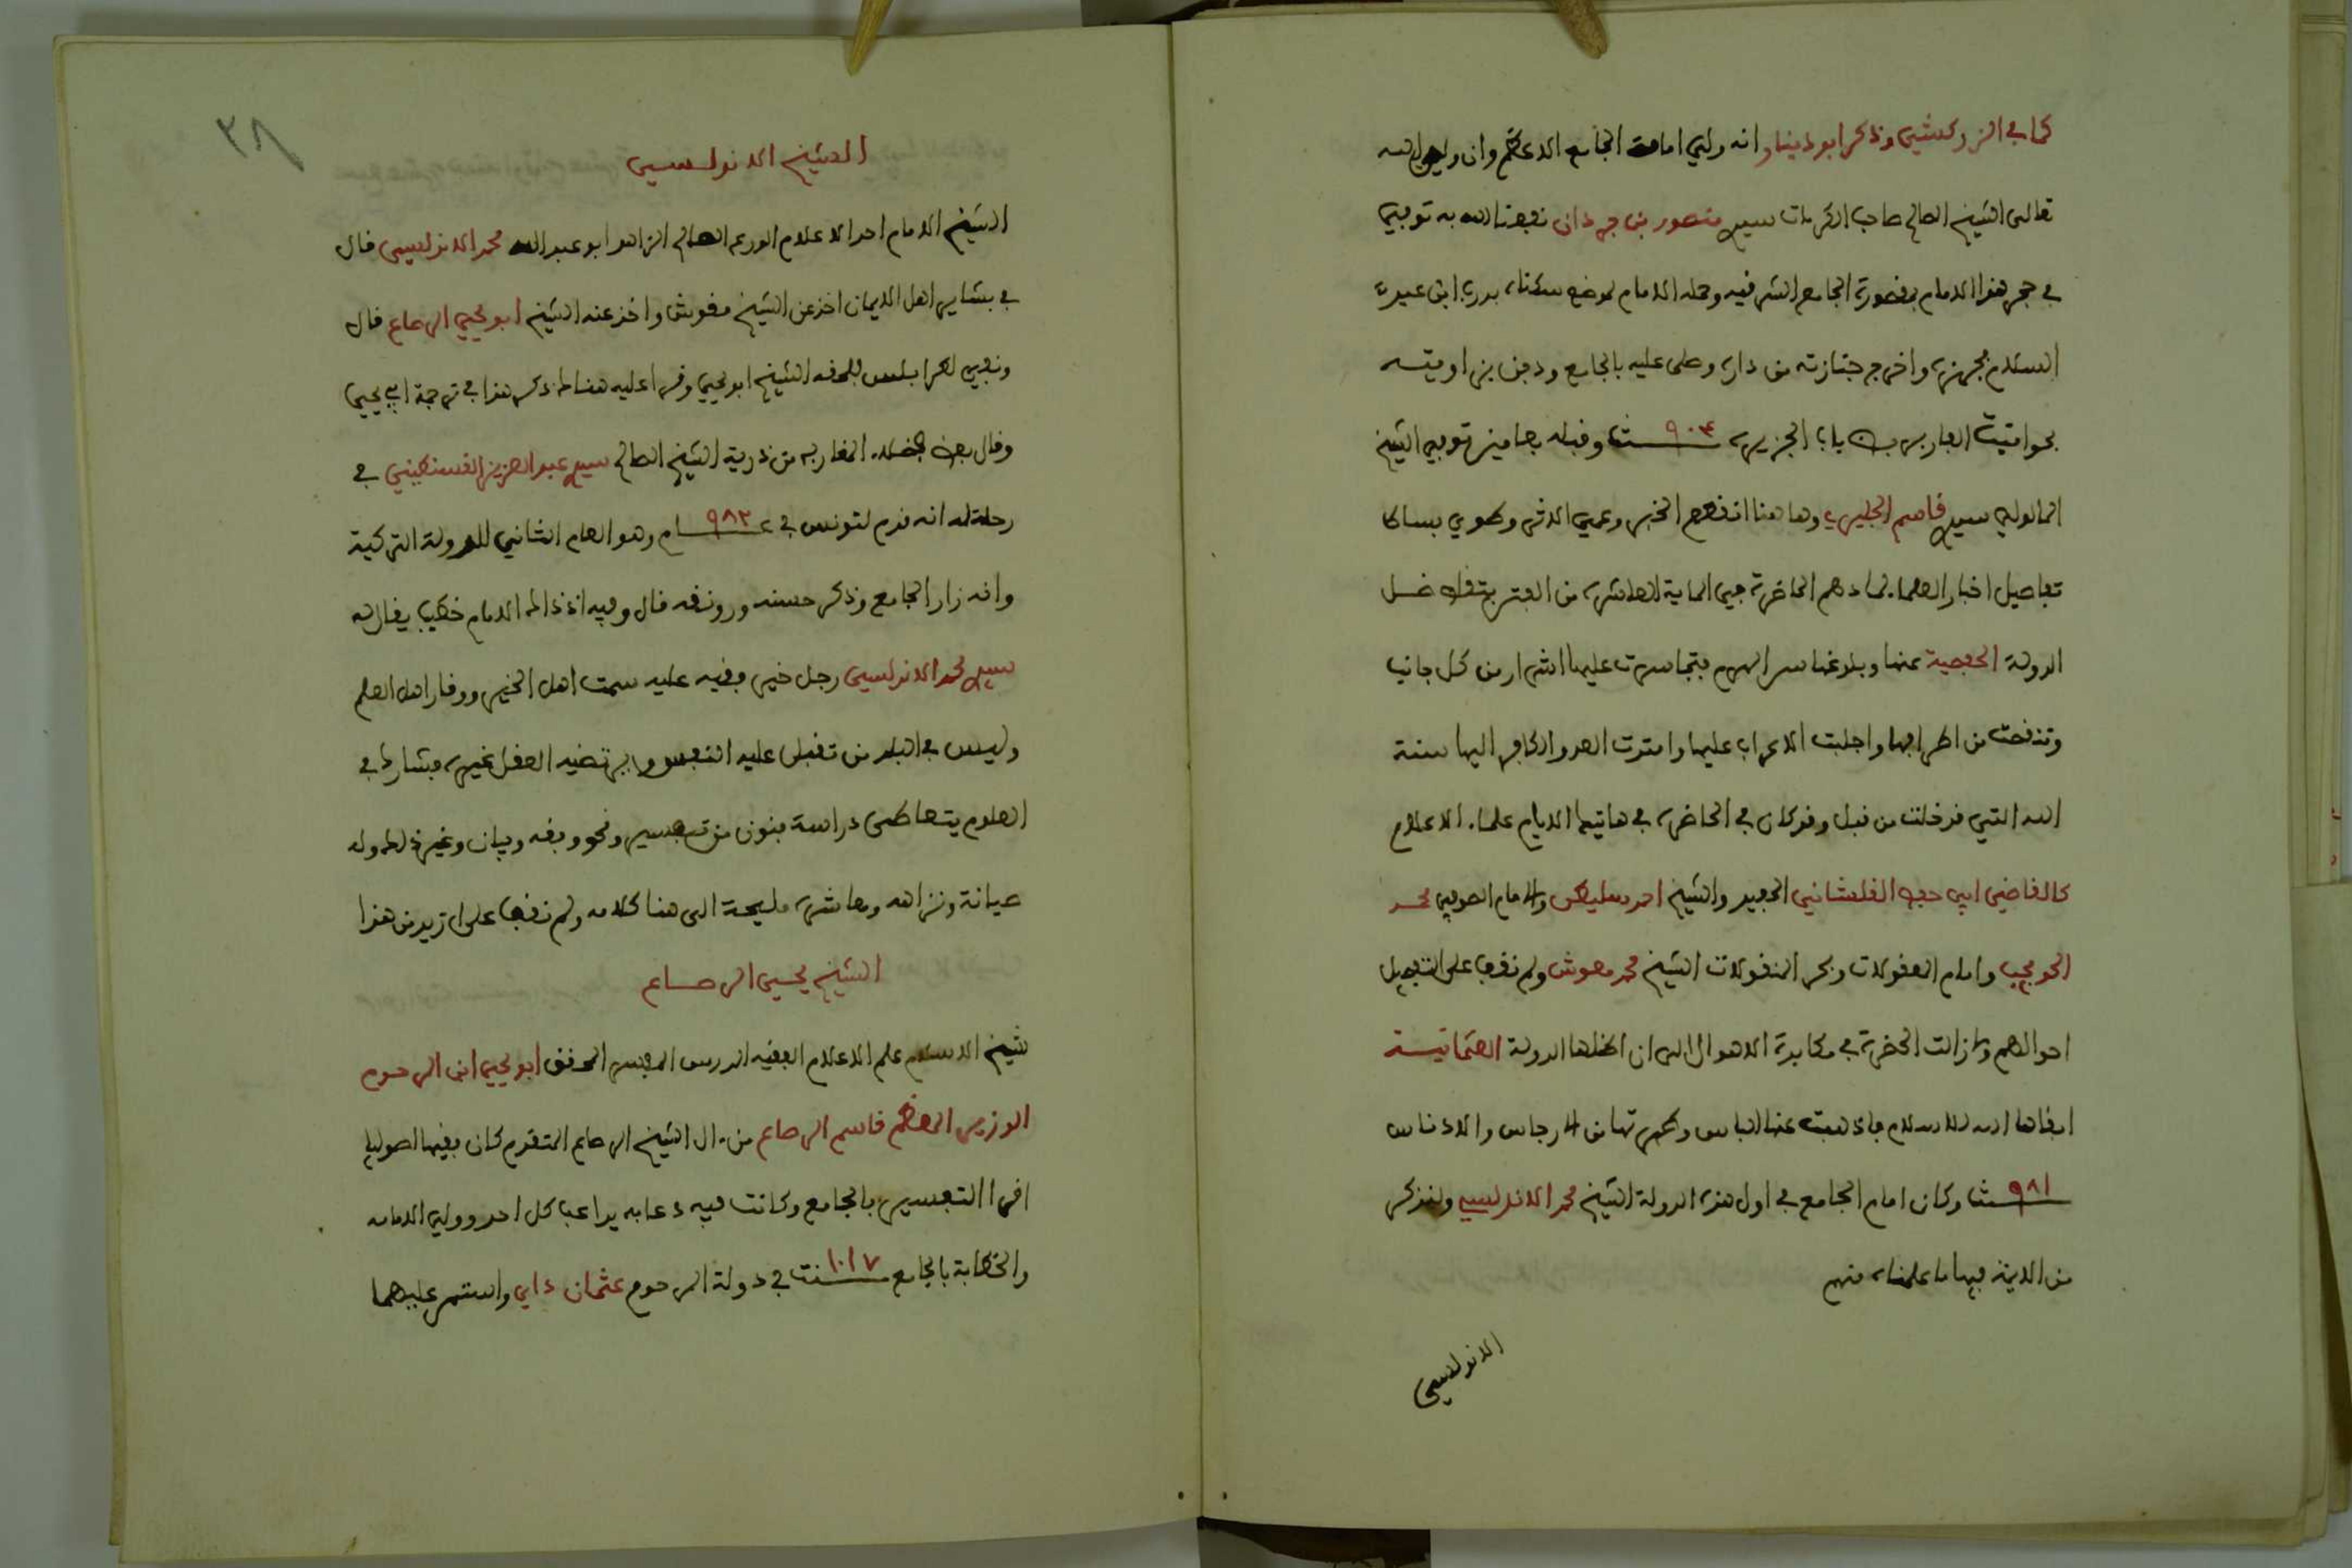 كما في الزركشي وذكر ابو دينار انه ولي امامة الجامع الاعظم وان ولي الله
تعالى الشيخ الصالح صاحب الكرمات سيدي منصور بن جردان نفعنا الله به توفي
في حجر هذا الامام بمقصورة الجامع الشرفيه وحمله الامام لموضع سكناه بدرب ابن عبد
السلام فجهزه واخرج جنازته من داره وصلى عليه بالجامع ودفن بزاويته
بحوانيت الفار بباب الجزيرة سنة ٩٠٤ وقبله بعامين توفي الشيخ
المالولي سيدي قاسم الجليزي وها هنا انقطع الخبر وعمي الاثر وطوي بساط
تفاصيل اخبار العلما بهاذه الحاضرة في الماية العاشرة من الفتن بتقلص ظل
الدولة الحفصية عنها وبلوغها سن الهرم فتجاسرت عليها الشرار من كل جانب
وتنقصت من اطرافها واجلبت الاعراب عليها وامتدت العدو الكافر اليها سنة
الله التي قد خلت من قبل وقد كان في الحاضرة في هاتيك الايام علماء الاعلام
كالقاضي ابي حفص القلشاني الحفيد والشيخ احمد سليطن والامام الصوفي محمد
المغوش وامام المعقولات وبحر المنقولات الشيخ محمد مغوش ولم نقف على تفصيل
احوالهم وما زالت الحضرة في مكابدة الاهوال الى ان اظلها الدولة العثمانية
ابقاها الله للاسلام فاذهبت عنها الباس وطهرتها من الارجاس والادناس
سنة ٩٨١ وكان امام الجامع في اول هذه الدولة الشيخ محمد الاندلسي ولنذكر
من الايمة فيها ما علمناه منهم
الاندلسي
٣٨
الشيخ الاندلسي
الشيخ الامام احد الاعلام الورع العالم الزاهد ابو عبد الله محمد الاندلسي قال
في بشاير اهل الايمان اخذ عن الشيخ مغوش واخذ عنه الشيخ ابو يحيى الرصاع قال
ونفي لطرابلس فلحقه الشيخ ابو يحيى وقرا عليه هناك ذكر هذا في ترجمة ابي يحيى
وقال بعض فضلاء المغاربه من ذرية الشيخ الصالح سيدي عبد العزيز القسنطيني في
رحلة له انه قدم لتونس في عام ٩٨٢ وهو العام الثاني للدولة التركية
وانه زار الجامع وذكر حسنه ورونقه قال وفيه اذ ذاك الامام خطيب يقال له
سيدي محمد الاندلسي رجل خير وفقيه عليه سمت اهل الخير ووقار اهل العلم
وليس في البلد من تقبل عليه النفس ويرتضيه العقل غيره مشارك في
العلوم يتعاطى دراسة فنون من تفسير ونحو وفقه وبيان وغير ذلك وله
صيانة ونزاهه ومعاشرة مليحة الى هنا كلامه ولم نقف على ازيد من هذا
الشيخ يحيى الرصاع
شيخ الاسلام علم الاعلام الفقيه المدرس المفسر المحقق ابو يحيى ابن المرحوم
الوزير المعظم قاسم الرصاع من ءال الشيخ الرصاع المتقدم كان فقيها اصوليا
اقرا التفسير بالجامع وكانت فيه دعابه يداعب كل احد وولي الامامه
والخطابة بالجامع سنة ١٠١٧ في دولة المرحوم عثمان داي واستمر عليهما